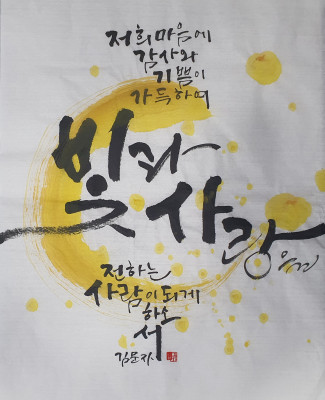 저희 마음에
감사와
기쁨이
가득하며
빛과
사랑을
전하는
사람이 되게
하소
서
김문자